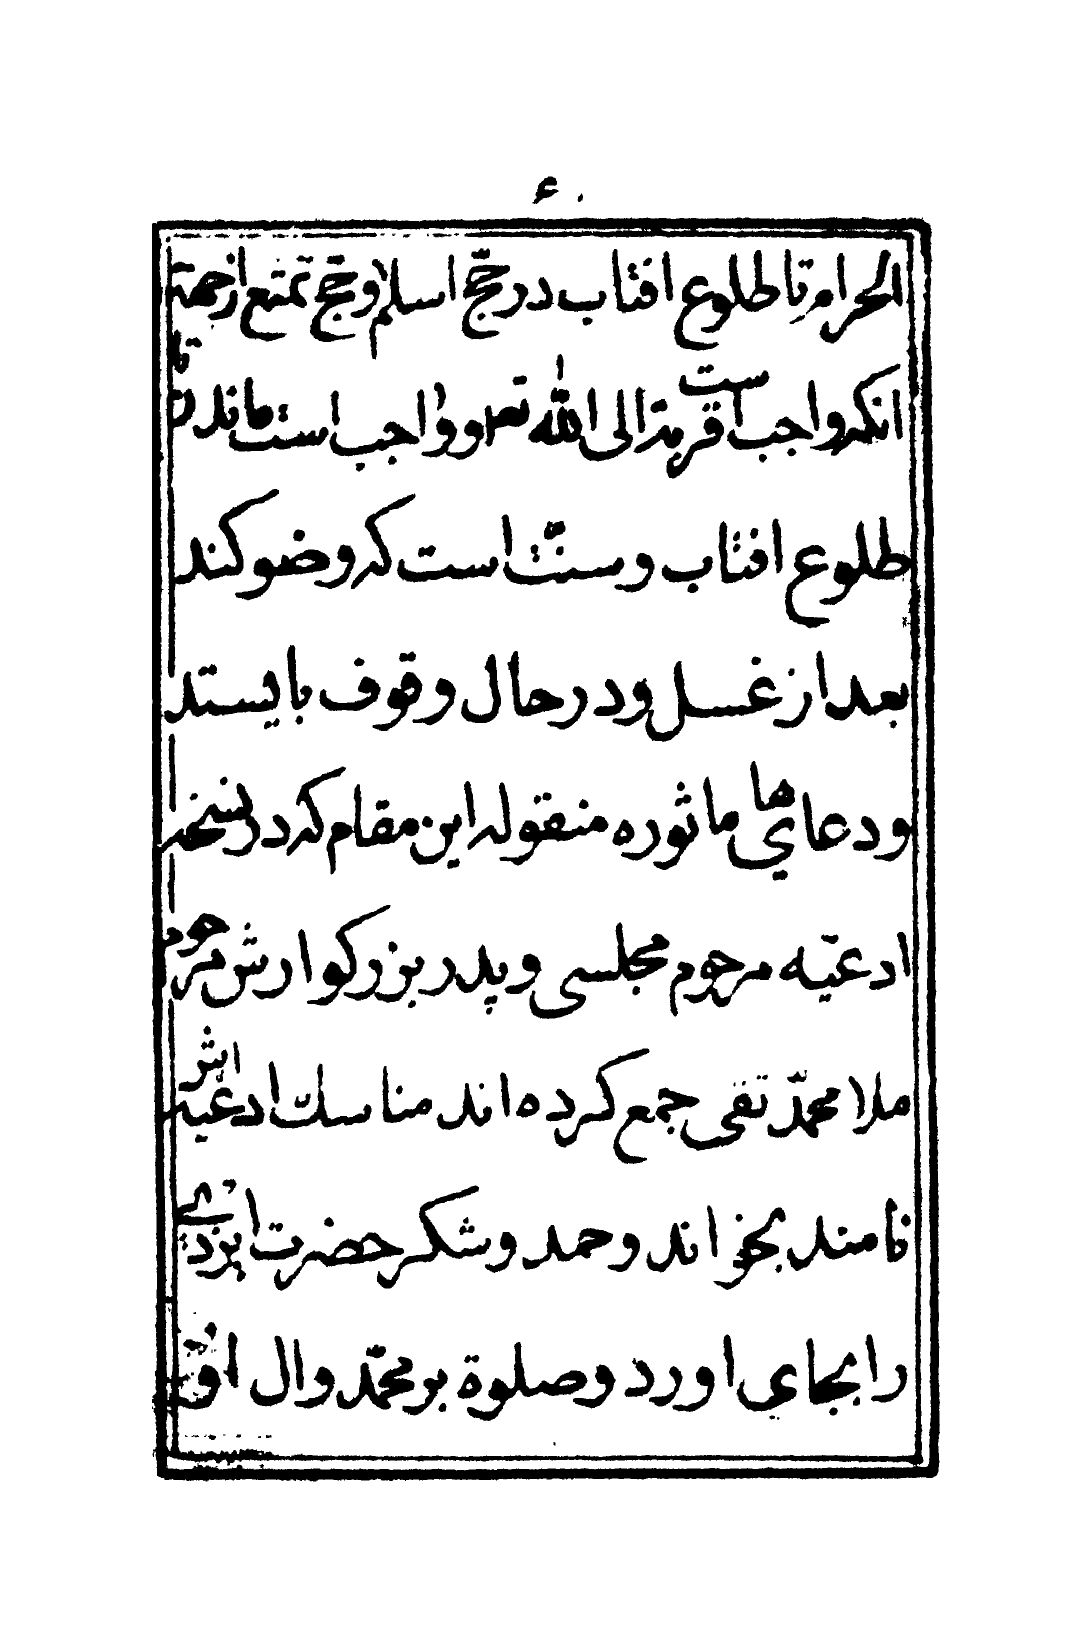 ۶۰
الحرام تا طلوع افتاب در حجّ اسلام و حجّ تمتع از جهته
انکه واجب است قربة الی الله تعم و واجب است ماندن تا
طلوع افتاب و سنّت است که وضو کند
بعد از غسل و در حال وقوف بایستد
و دعاهای ماثوره منقوله این مقام که در نسخه
ادعیّه مرحوم مجلسی و پدر بزرکوارش مرحوم
ملا محمّد تقی جمع کرده اند مناسک ادعیّه اش
نامند بخواند و حمد و شکر حضرت ایزدی
را بجای اورد و صلوة بر محمّد و ال او